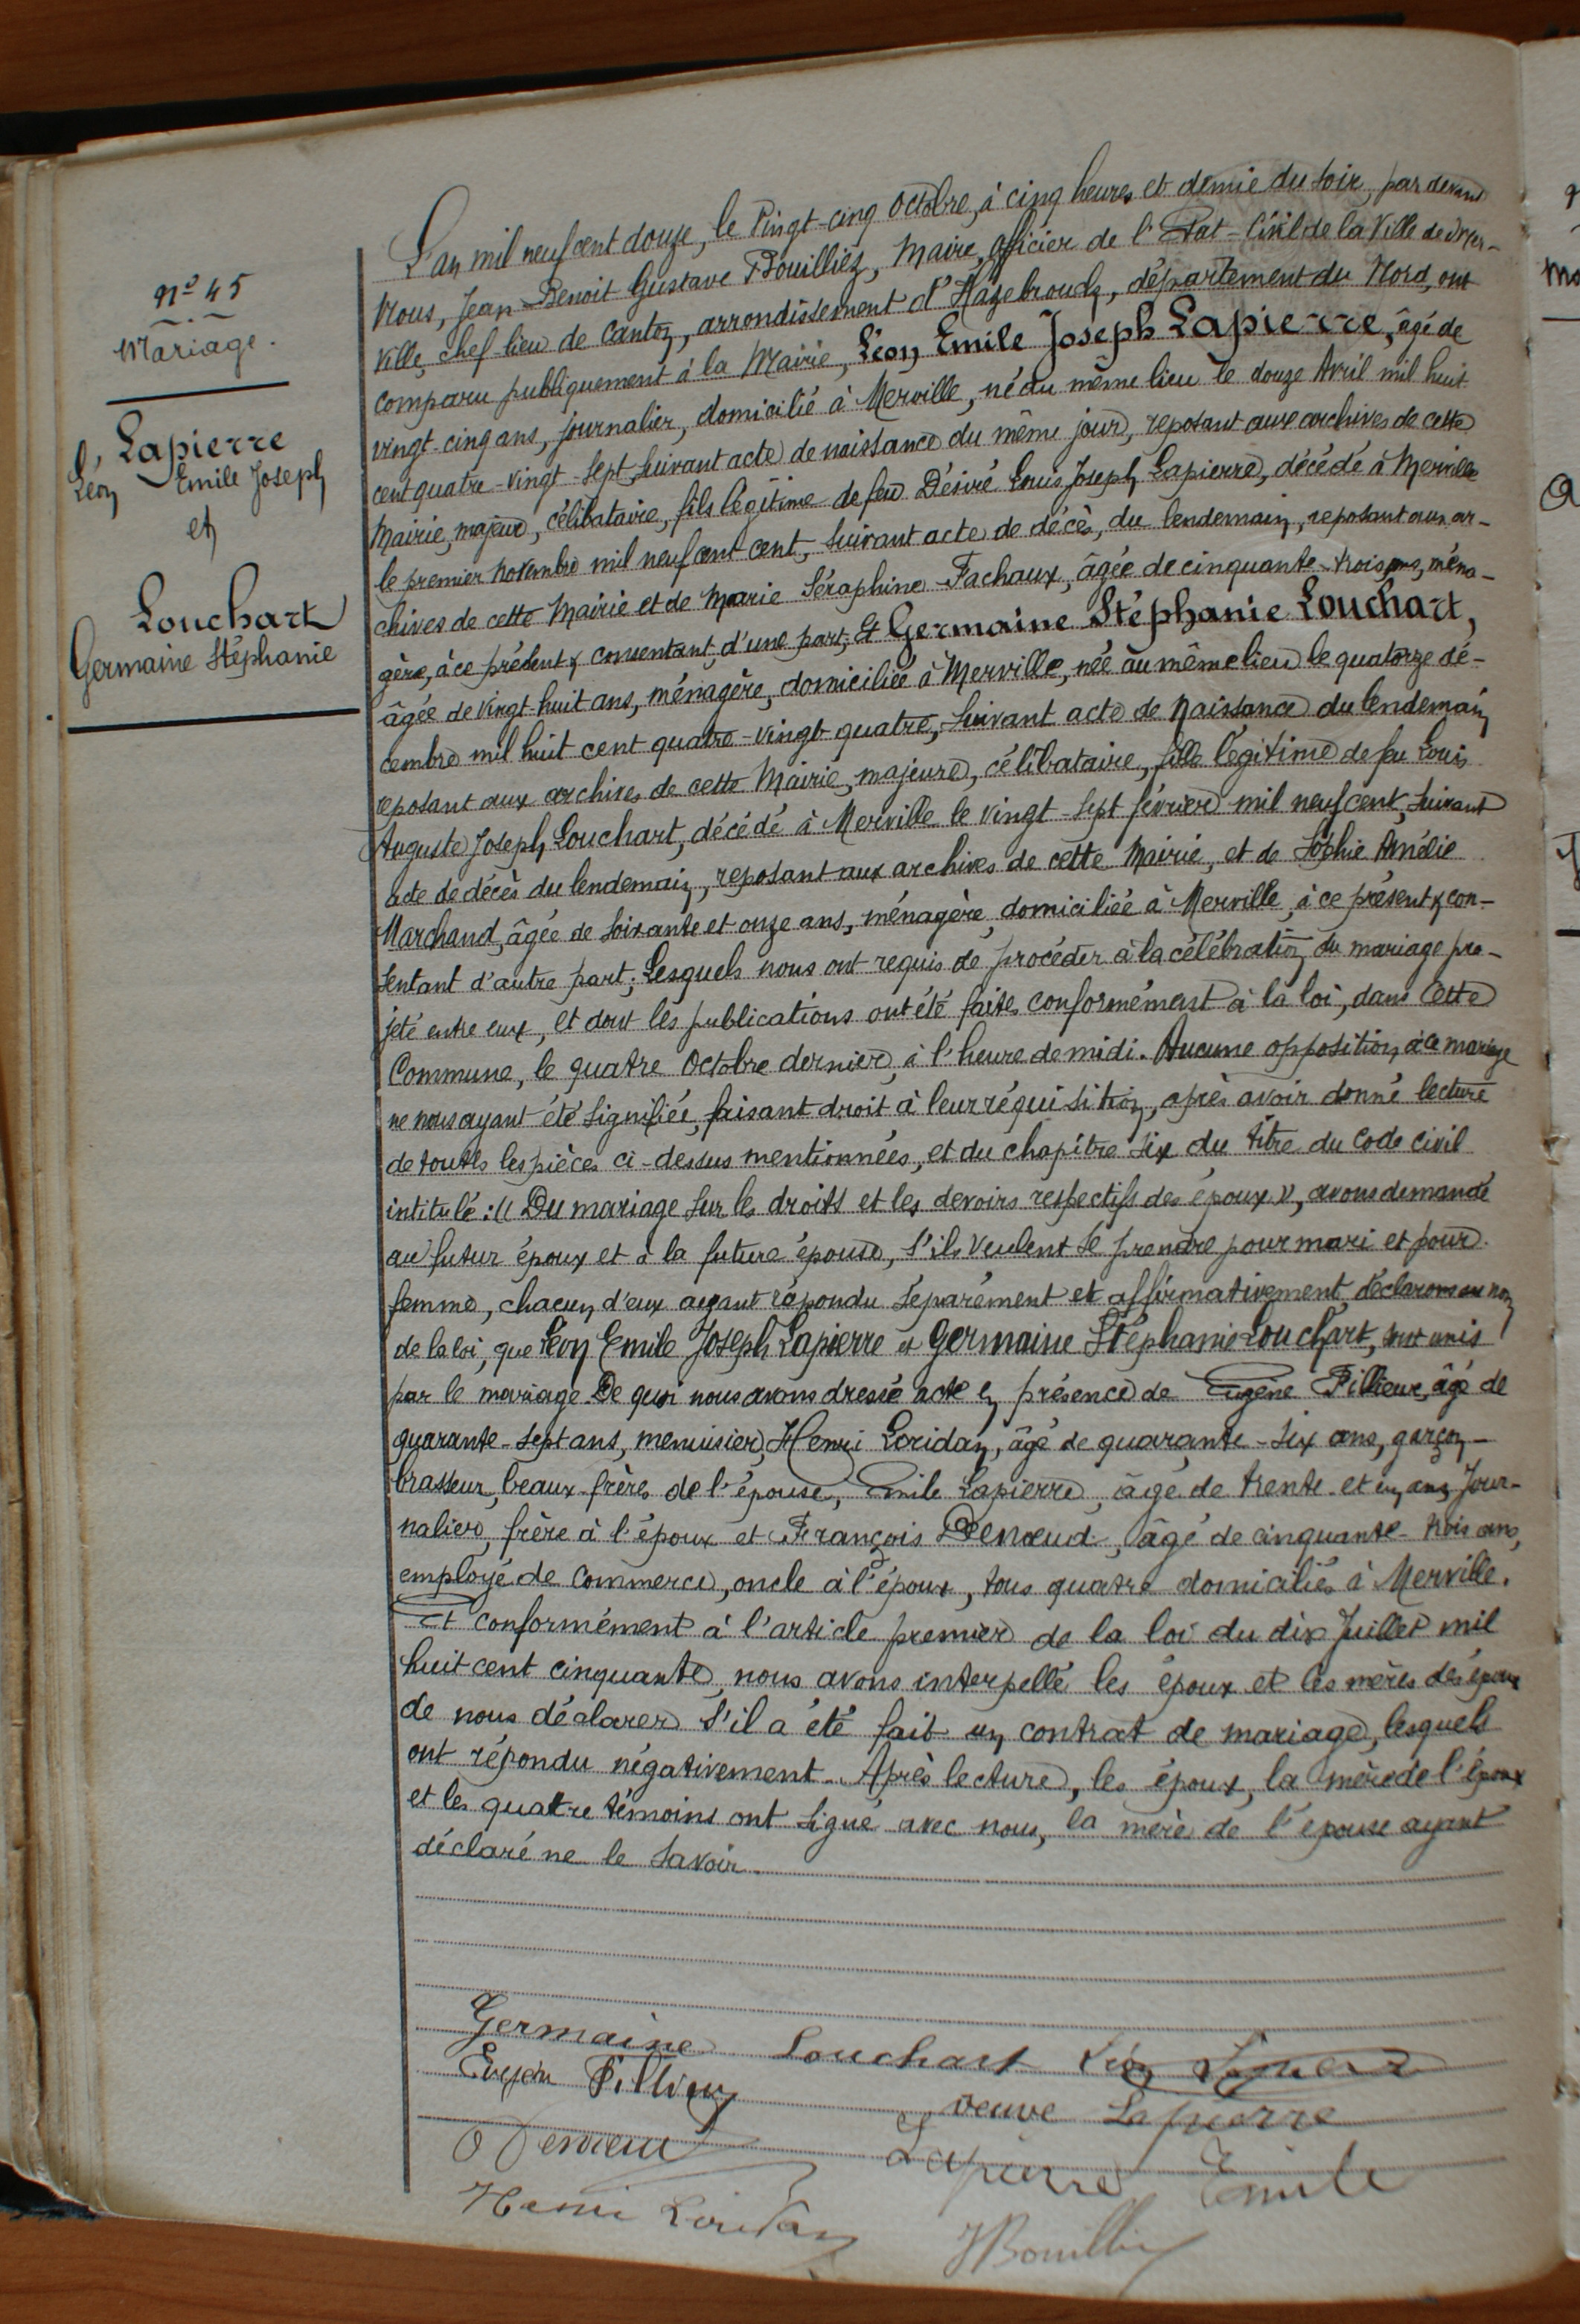 N° 45
Mariage.
Lapierre
Léon Emile Joseph
et
Louchart
Germaine Stéphanie
L'an mil neuf cent douze, le Vingt-cinq Octobre, à cinq heures et demie du soir, par devant
Nous, Jean-Benoit Gustave Bouilliez, Maire, Officier de l'Etat-Civil de la Ville de Mer-
ville, chef-lieu de Canton, arrondissement d'Hazebrouck, département du Nord, ont
comparu publiquement à la Mairie, Léon Emile Joseph Lapierre, âgé de
vingt-cinq ans, journalier, domicilié à Merville, né au même lieu le douze Avril mil huit
cent quatre-vingt-sept, suivant acte de naissance du même jour, reposant aux archives de cette
Mairie, majeur, célibataire, fils légitime de feu Désiré Louis Joseph Lapierre, décédé à Merville
le premier Novembre mil neuf cent cent, suivant acte de décès, du lendemain, reposant aux ar-
chives de cette Mairie et de Marie Séraphine Fachaux, âgée de cinquante-trois ans, ména-
gère, à ce présent & consentant, d'une part; Et Germaine Stéphanie Louchart,
âgée de vingt-huit ans, ménagère, domiciliée à Merville, née au même lieu le quatorze dé-
cembre mil huit cent quatre-vingt-quatre, suivant acte de Naissance du lendemain
reposant aux archives de cette Mairie, majeure, célibataire, fille légitime de feu Louis
Auguste Joseph Louchart, décédé à Merville le vingt-sept février mil neuf cent, suivant
acte de décès du lendemain, reposant aux archives de cette Mairie, et de Sophie Amélie
Marchand, âgée de soixante et onze ans, ménagère, domiciliée à Merville, à ce présent & con-
sentant d'autre part; Lesquels nous ont requis de procéder à la célébration du mariage pro-
jeté entre eux, et dont les publications ont été faites conformément à la loi, dans cette
Commune, le quatre Octobre dernier, à l'heure de midi. Aucune opposition à ce mariage
ne nous ayant été signifiée, faisant droit à leur réquisition, après avoir donné lecture
de toutes les pièces ci-dessus mentionnées, et du chapitre six du titre du Code civil
intitulé: « Du mariage sur les droits et les devoirs respectifs des époux », avons demandé
au futur époux et à la future épouse, s'ils veulent se prendre pour mari et pour
femme, chacun d'eux ayant répondu séparément et affirmativement, déclarons au nom
de la loi, que Léon Emile Joseph Lapierre et Germaine Stéphanie Louchart, sont unis
par le mariage. De quoi nous avons dressé acte en présence de Eugène Fillieux, âgé de
quarante-sept ans, menuisier, Henri Loridan, âgé de quarante-six ans, garçon-
brasseur, beaux-frères de l'épouse, Emile Lapierre, âgé de trente-et-un ans, Jour-
nalier, frère à l'époux et François Denœud, âgé de cinquante-trois ans,
employé de commerce, oncle à l'époux, tous quatre domiciliés à Merville.
Et conformément à l'article premier de la loi du dix Juillet mil
huit cent cinquante, nous avons interpellé les époux et les mères des époux
de nous déclarer s'il a été fait un contrat de mariage, lesquels
ont répondu négativement. Après lecture, les époux, la mère de l'époux
et les quatre témoins ont signé avec nous, la mère de l'épouse ayant
déclaré ne le savoir.
Germaine Louchart Léon Lapierre
Eugène Fillieux
veuve Lapierre
Denœud
Lapierre Emile
Henri Loridan
Bouilliez